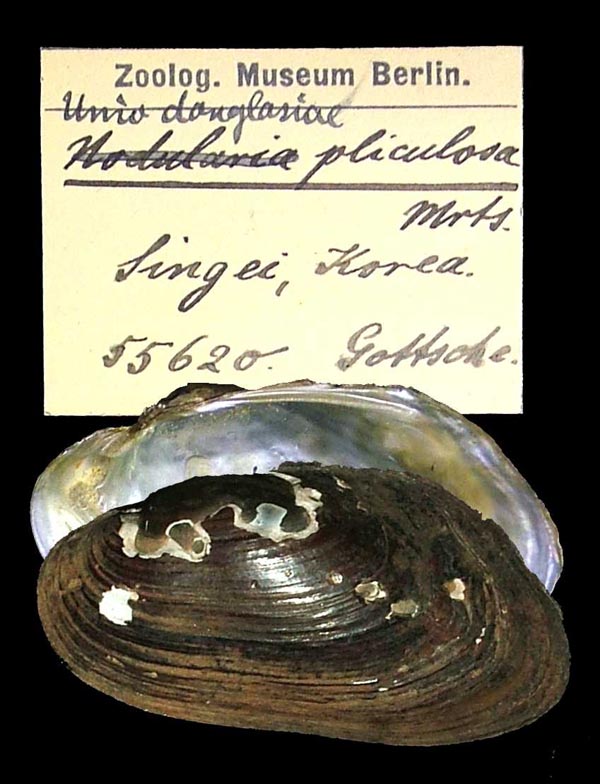 Zoolog. Museum Berlin.
Unio douglasiae
Nodularia pliculosa
Mrts.
Singei, Korea.
55620. Gottsche.